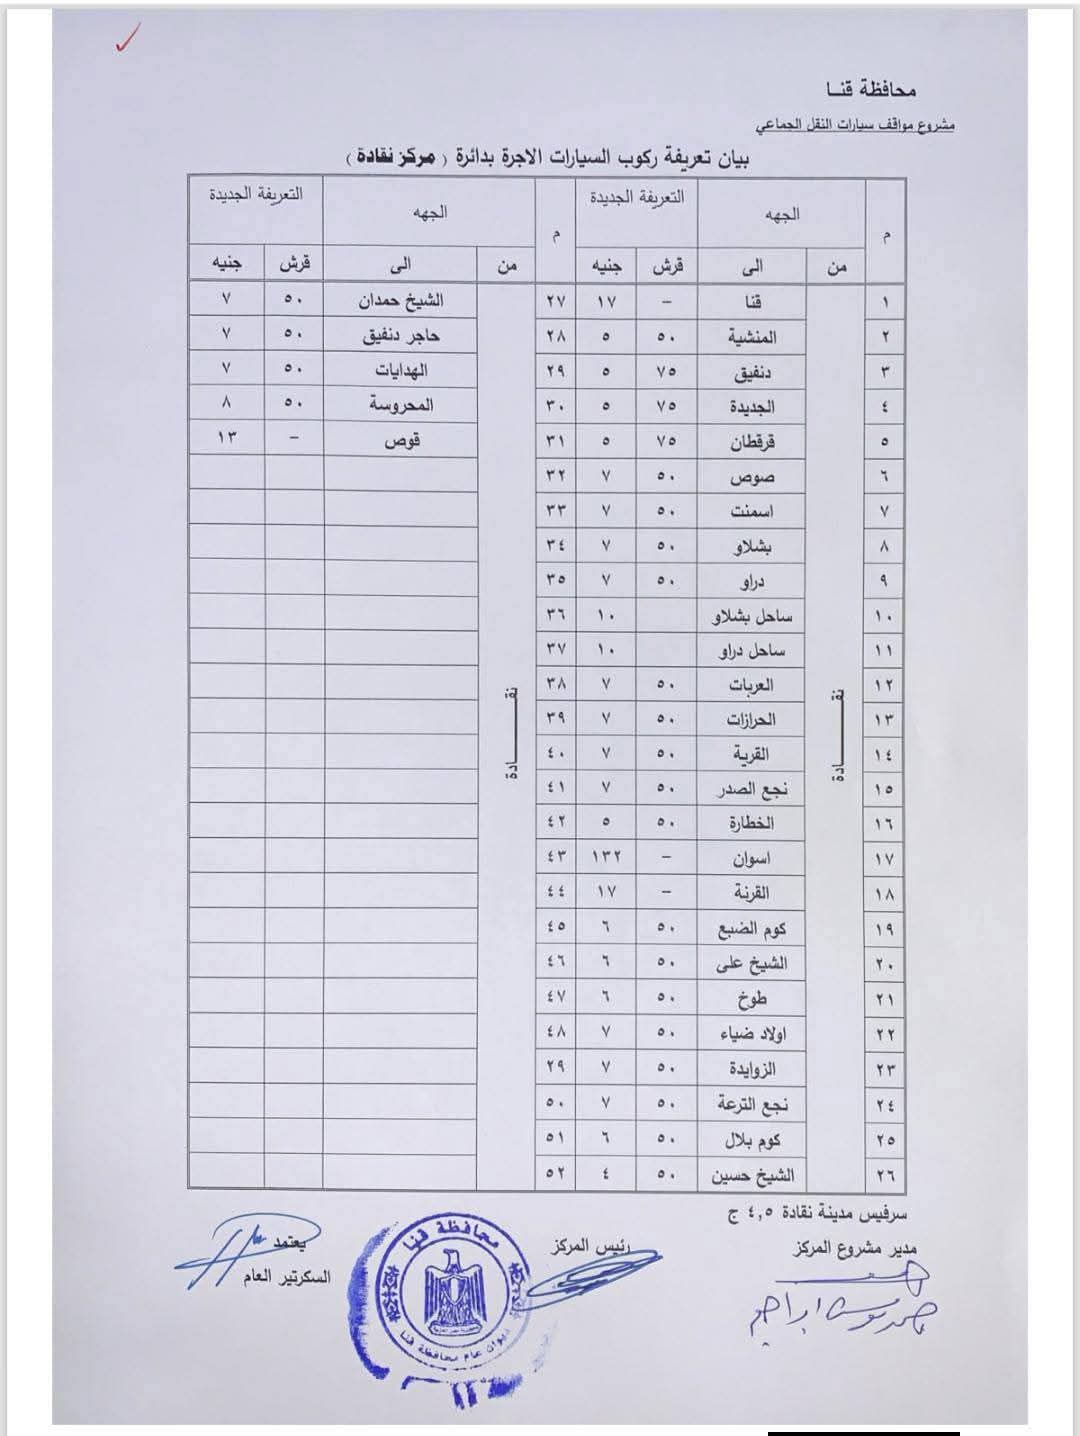 محافظة قنـا
مشروع مواقف سيارات النقل الجماعي
بيان تعريفة ركوب السيارات الاجرة بدائرة ( مركز نقادة )
م الجهه التعريفة الجديدة م الجهه التعريفة الجديدة
من الى قرش جنيه من الى قرش جنيه
نقــــــادة نقــــــادة
١ قنا – ١٧ ٢٧ الشيخ حمدان ٥٠ ٧
٢ المنشية ٥٠ ٥ ٢٨ حاجر دنفيق ٥٠ ٧
٣ دنفيق ٧٥ ٥ ٢٩ الهدايات ٥٠ ٧
٤ الجديدة ٧٥ ٥ ٣٠ المحروسة ٥٠ ٨
٥ قرقطان ٧٥ ٥ ٣١ قوص – ١٣
٦ صوص ٥٠ ٧ ٣٢
٧ اسمنت ٥٠ ٧ ٣٣
٨ بشلاو ٥٠ ٧ ٣٤
٩ دراو ٥٠ ٧ ٣٥
١٠ ساحل بشلاو ١٠ ٣٦
١١ ساحل دراو ١٠ ٣٧
١٢ العربات ٥٠ ٧ ٣٨
١٣ الحرازات ٥٠ ٧ ٣٩
١٤ القرية ٥٠ ٧ ٤٠
١٥ نجع الصدر ٥٠ ٧ ٤١
١٦ الخطارة ٥٠ ٥ ٤٢
١٧ اسوان – ١٣٢ ٤٣
١٨ القرنة – ١٧ ٤٤
١٩ كوم الضبع ٥٠ ٦ ٤٥
٢٠ الشيخ على ٥٠ ٦ ٤٦
٢١ طوخ ٥٠ ٦ ٤٧
٢٢ اولاد ضياء ٥٠ ٧ ٤٨
٢٣ الزوايدة ٥٠ ٧ ٢٩
٢٤ نجع الترعة ٥٠ ٧ ٥٠
٢٥ كوم بلال ٥٠ ٦ ٥١
٢٦ الشيخ حسين ٥٠ ٤ ٥٢
سرفيس مدينة نقادة ٤,٥ ج
مدير مشروع المركز رئيس المركز يعتمد
السكرتير العام
محافظة قنا
ديوان عام محافظة قنا